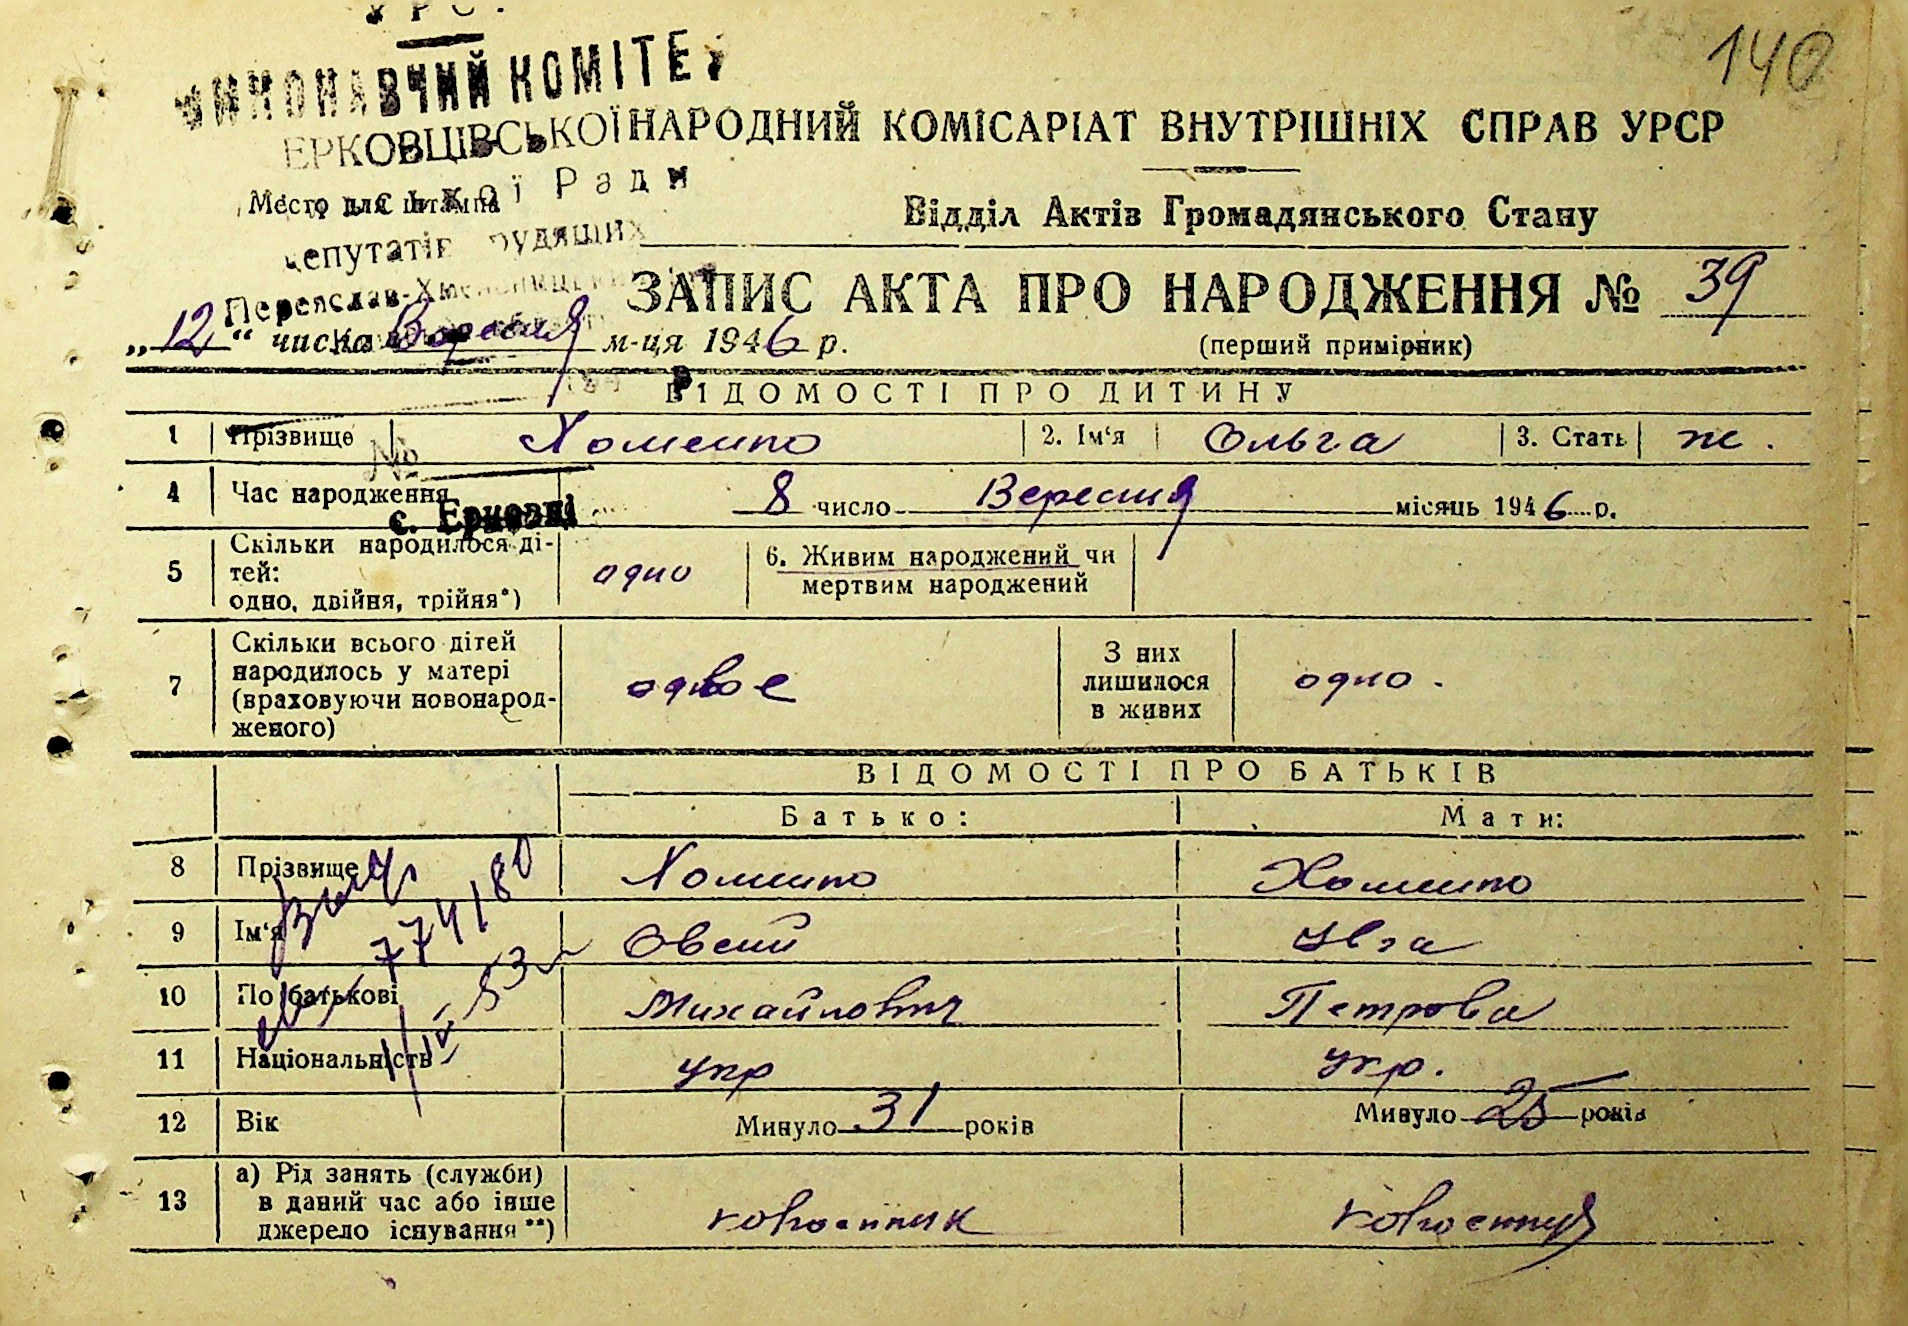 УРСР
140
ВИКОНАВЧИЙ КОМІТЕТ
ЕРКОВЦІВСЬКОЇ
НАРОДНИЙ КОМІСАРІАТ ВНУТРІШНІХ СПРАВ УРСР
Ради
Место для штампа
Відділ Актів Громадянського Стану
депутатів трудящих
Переяслав-Хмельницького
ЗАПИС АКТА ПРО НАРОДЖЕННЯ № 39
„12“ числа Вересня м-ця 1946 р.
(перший примірник)
ВІДОМОСТІ ПРО ДИТИНУ
1 Прізвище Хоменко 2. Ім'я Ольга 3. Стать ж.
№
4 Час народження 8 число Вересня місяць 1946 р.
с. Ерковці
5 Скільки народилося ді-
тей:
одно, двійня, трійня*)
одно
6. Живим народжений чи
мертвим народжений
7 Скільки всього дітей
народилось у матері
(враховуючи новонарод-
женого)
двое
З них
лишилося
в живих
одно.
ВІДОМОСТІ ПРО БАТЬКІВ
Батько: Мати:
8 Прізвище Хоменко Хоменко
9 Ім'я Овсий Ивга
774180
10 По батькові Михайлович Петрова
53
11 Національність укр укр.
12 Вік Минуло 31 років Минуло 25 років
13 а) Рід занять (служби)
в даний час або інше
джерело існування**)
колгоспник колгоспниця